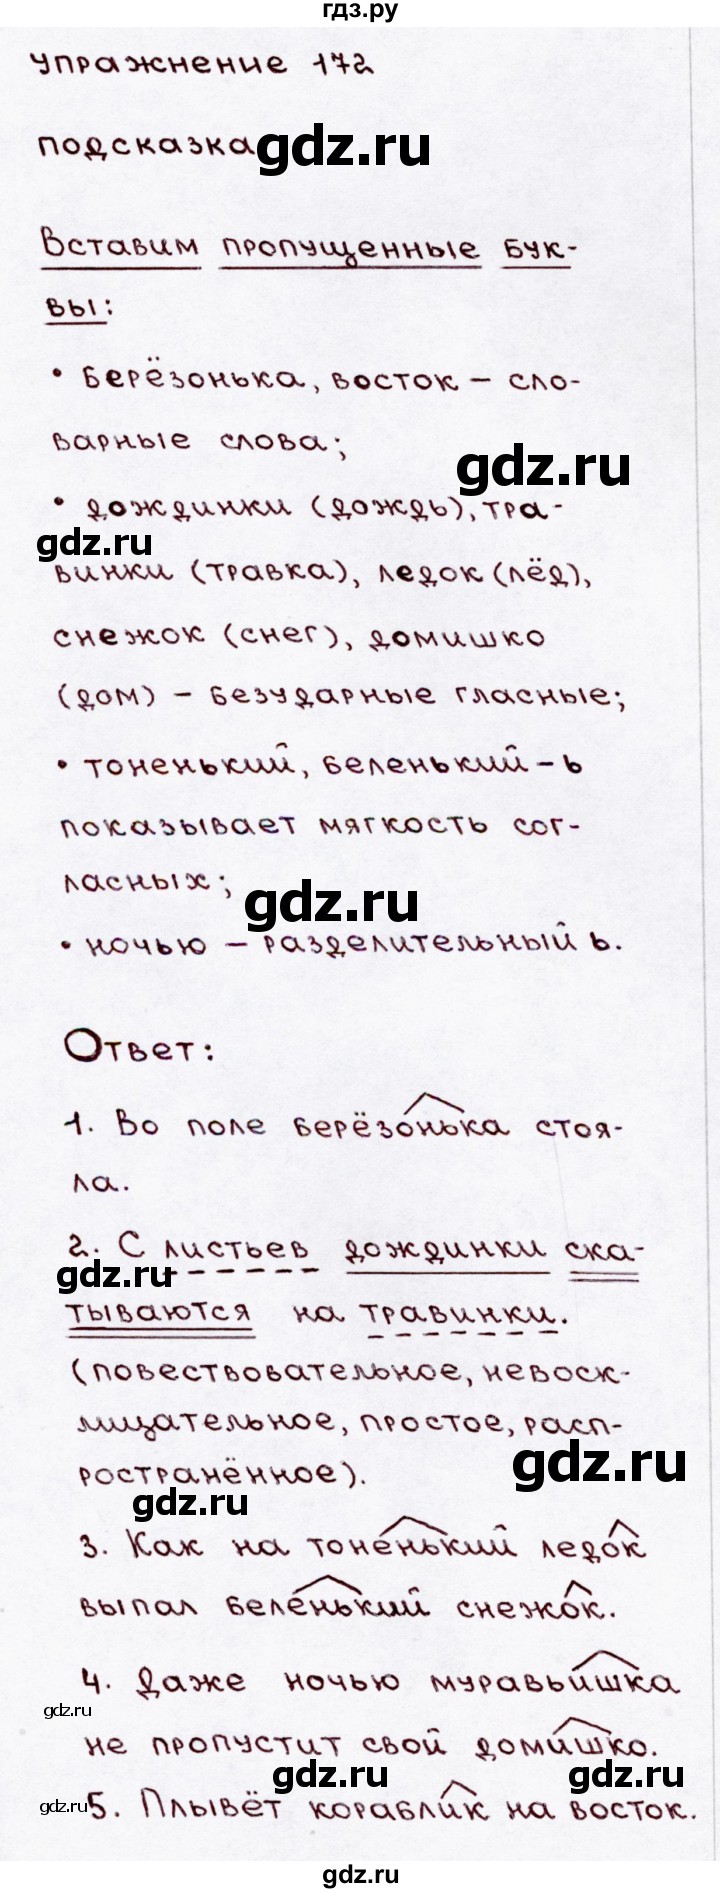 гдз.ру
Упражнение 172
подсказка gdz.ru
Вставим пропущенные бук-
вы:
• берёзонька, восток – сло-
варные слова;
gdz.ru
• дождинки (дождь), тра-
gdz.ru
винки (травка), ледок (лёд),
снежок (снег), домишко
(дом) – безударные гласные;
• тоненький, беленький – ь
показывает мягкость сог-
ласных;
gdz.ru
• ночью – разделительный ь.
Ответ:
1. Во поле берёзонька стоя-
ла.
2. С листьев дождинки ска-
gdz.ru
тываются на травинки.
(повествовательное, невоск-
лицательное, простое, расп-
gdz.ru
ространённое).
gdz.ru
3. Как на тоненький ледок
выпал беленький снежок.
4. Даже ночью муравьишка
gdz.ru
не пропустит свой домишко.
gdz.ru gdz.ru
gdz.ru
5. Плывёт кораблик на восток.
gdz.ru